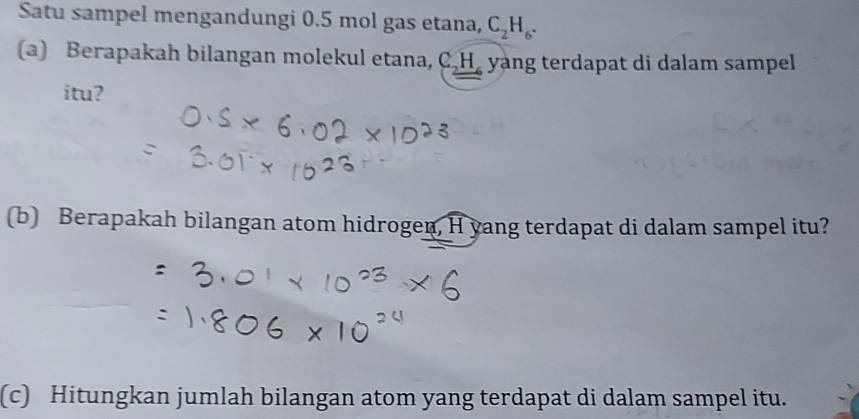 Satu sampel mengandungi 0.5 mol gas etana, C₂H₆.
(a) Berapakah bilangan molekul etana, C₂H₆ yang terdapat di dalam sampel
itu?
0.5 × 6.02 × 10²³
= 3.01 × 10²³
(b) Berapakah bilangan atom hidrogen, H yang terdapat di dalam sampel itu?
= 3.01 × 10²³ × 6
= 1.806 × 10²⁴
(c) Hitungkan jumlah bilangan atom yang terdapat di dalam sampel itu.